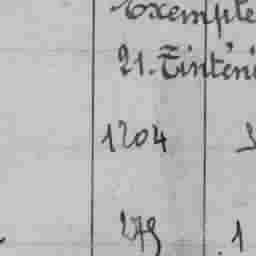 Exempte
21. Tinténi
1204
279 1